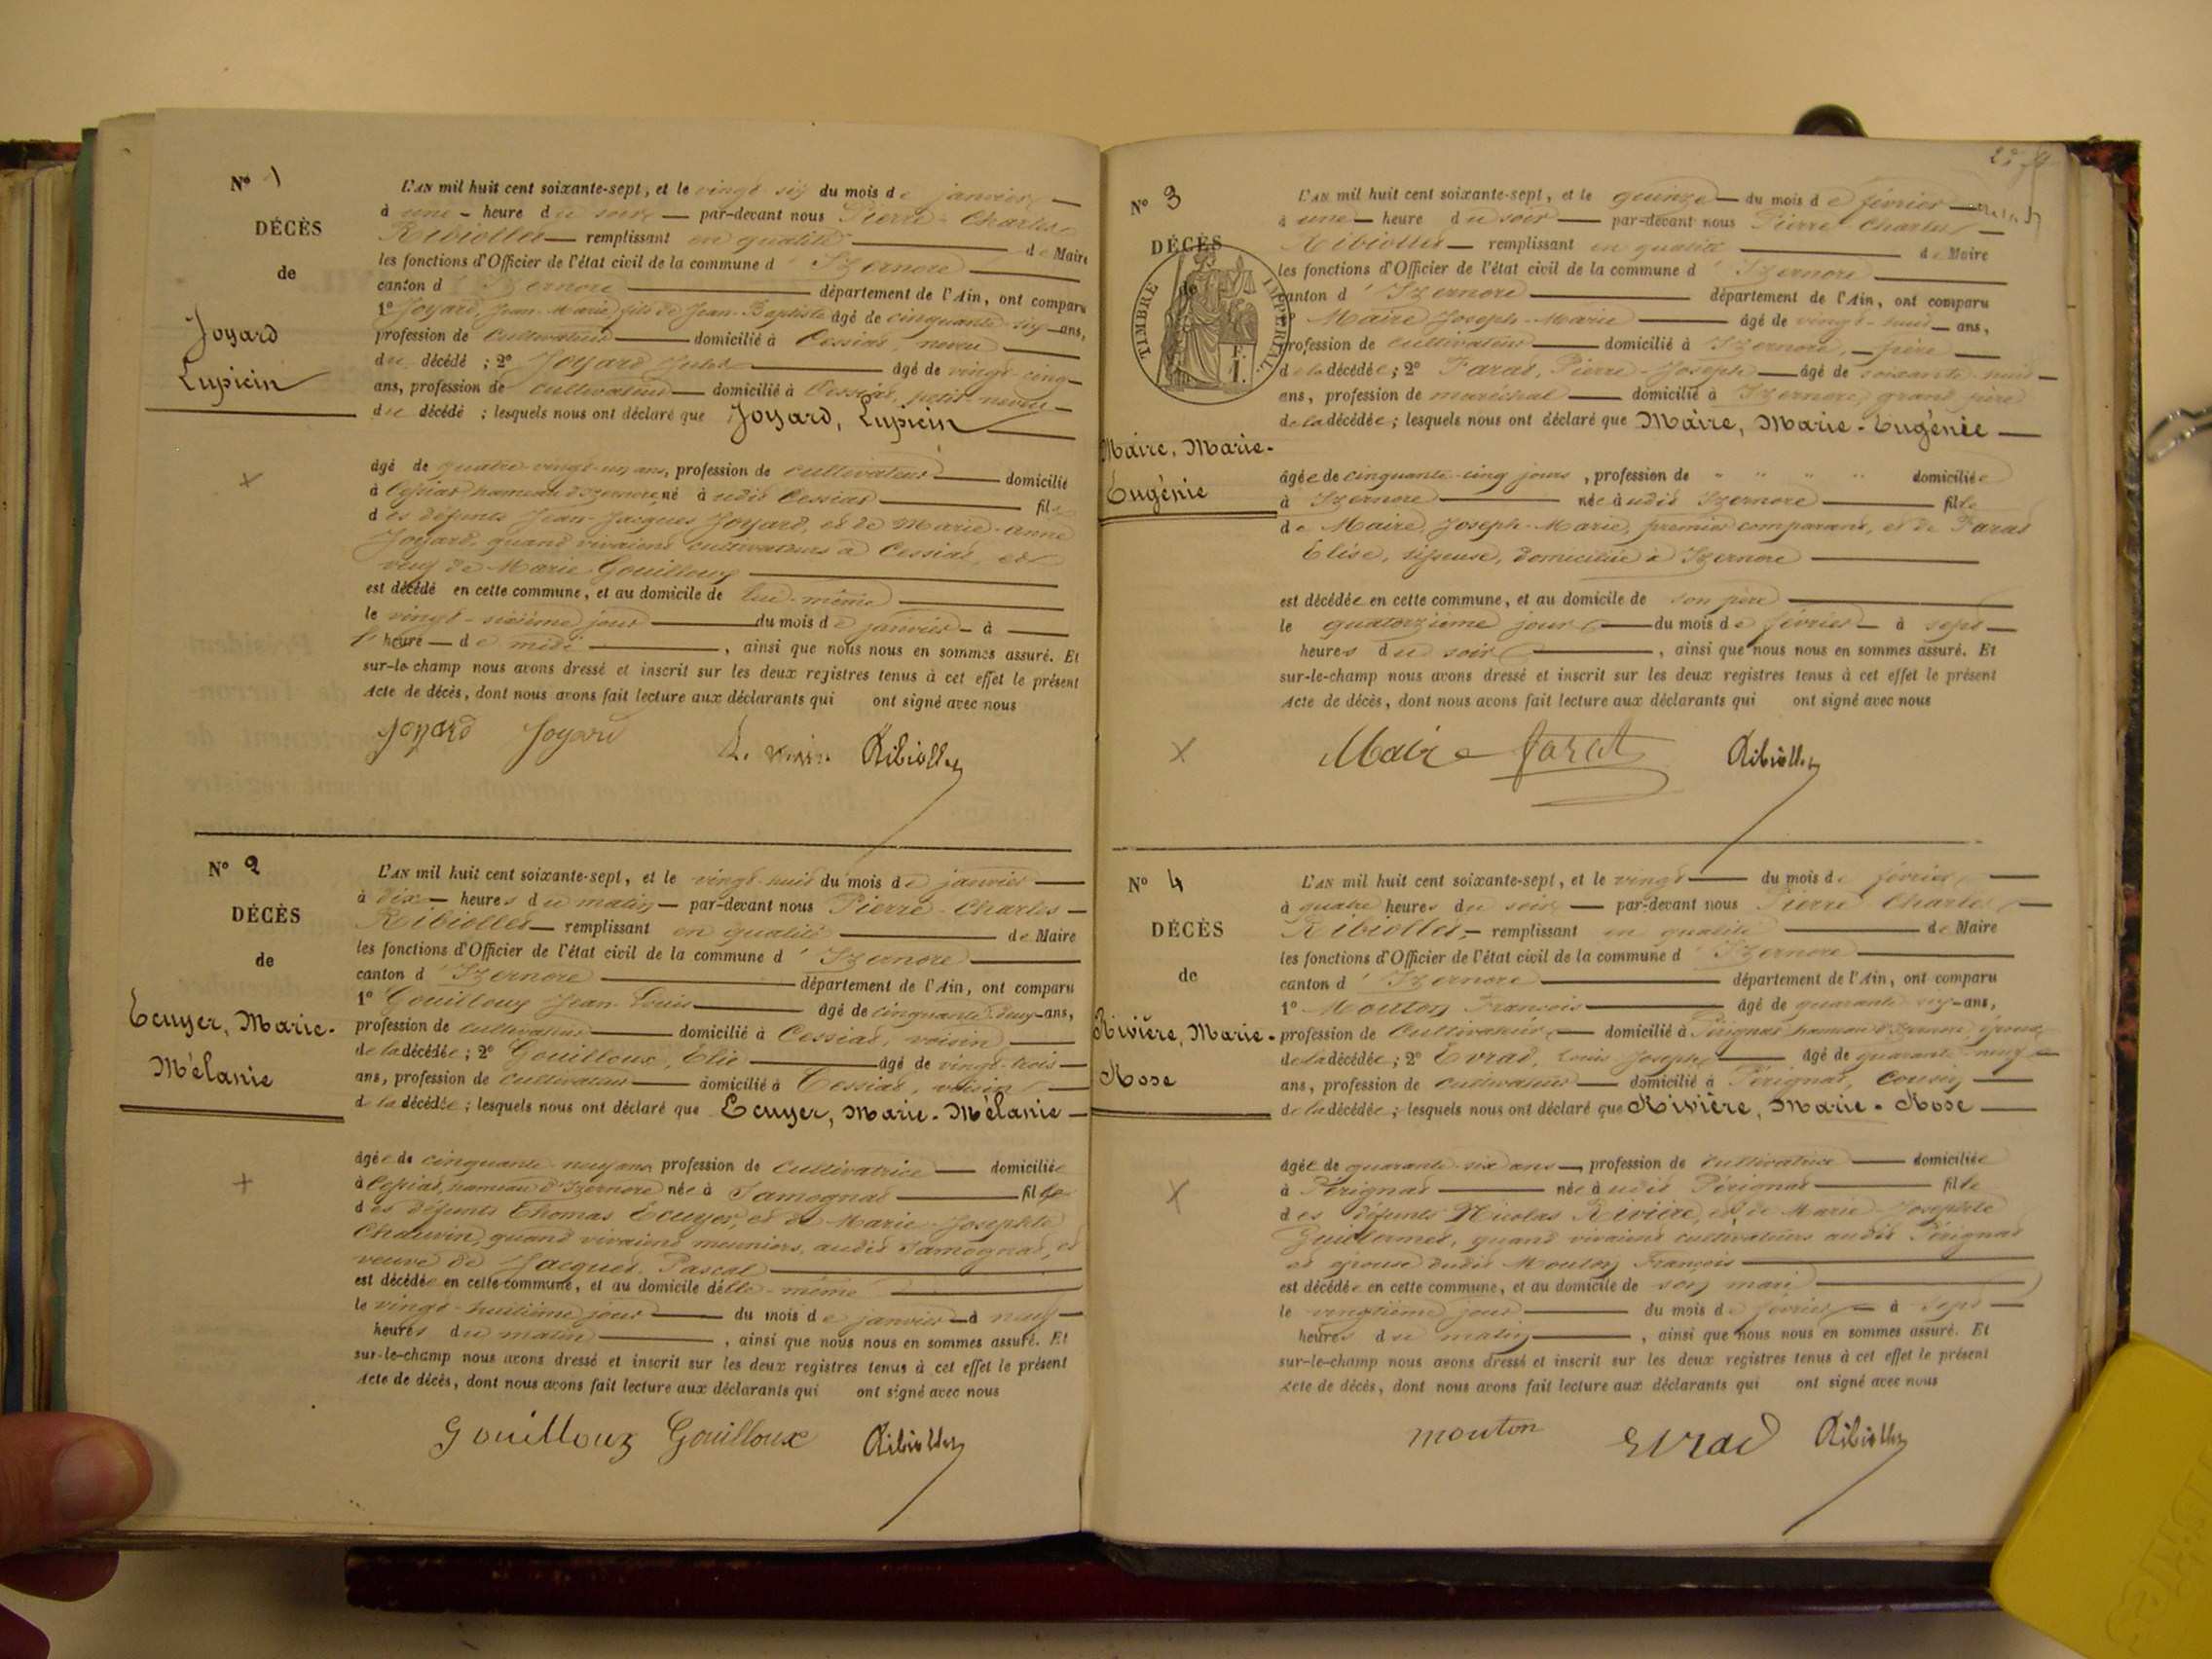 N° 1
DÉCÈS
de
Joyard
Lupicin
L'AN mil huit cent soixante-sept, et le vingt six du mois de janvier
à une heure du soir par-devant nous Pierre-Charles
Ribiollet remplissant en qualité de Maire
les fonctions d'Officier de l'état civil de la commune d'Izernore
canton d'Izernore département de l'Ain, ont comparu
1° Joyard, Jean-Marie, fils de Jean-Baptiste âgé de cinquante-six ans,
profession de Cultivateur domicilié à Cessiat, neveu
du décédé ; 2° Joyard Jules âgé de vingt cinq
ans, profession de cultivateur domicilié à Cessiat, petit-neveu
du décédé ; lesquels nous ont déclaré que Joyard, Lupicin
âgé de quatre-vingt-un ans, profession de cultivateur domicilié
à Cessiat hameau d'Izernore né à udit Cessiat fils
des défunts Jean-Jacques Joyard, et de Marie-Anne
Joyard, quand vivaient cultivateurs à Cessiat, et
veuf de Marie Gouilloux
est décédé en cette commune, et au domicile de lui-même
le vingt-sixième jour du mois de janvier à
heure de midi , ainsi que nous nous en sommes assuré. Et
sur-le champ nous avons dressé et inscrit sur les deux registres tenus à cet effet le présent
Acte de décès, dont nous avons fait lecture aux déclarants qui ont signé avec nous
Joyard Joyard Ribiollet
N° 2
DÉCÈS
de
Ecuyer, Marie-
Mélanie
L'AN mil huit cent soixante-sept, et le vingt-huit du mois de janvier
à dix heures du matin par-devant nous Pierre-Charles
Ribiollet remplissant en qualité de Maire
les fonctions d'Officier de l'état civil de la commune d'Izernore
canton d'Izernore département de l'Ain, ont comparu
1° Gouilloux Jean-Louis âgé de cinquante-deux ans,
profession de cultivateur domicilié à Cessiat, voisin
de la décédée ; 2° Gouilloux, Élie âgé de vingt-trois
ans, profession de cultivateur domicilié à Cessiat, voisin
de la décédée ; lesquels nous ont déclaré que Ecuyer, Marie-Mélanie
âgée de cinquante-neuf ans profession de Cultivatrice domiciliée
à Cessiat, hameau d'Izernore née à Samognat fille
des défunts Thomas Ecuyer, et de Marie-Josephte
Chauvin, quand vivaient meuniers, audit Samognat, et
veuve de Jacques Pascal
est décédée en cette commune, et au domicile d'elle-même
le vingt-huitième jour du mois de janvier à neuf
heures du matin , ainsi que nous nous en sommes assuré. Et
sur-le-champ nous avons dressé et inscrit sur les deux registres tenus à cet effet le présent
Acte de décès, dont nous avons fait lecture aux déclarants qui ont signé avec nous
Gouilloux Gouilloux Ribiollet
N° 3
DÉCÈS
de
TIMBRE IMPERIAL
Maire, Marie-
Eugénie
L'AN mil huit cent soixante-sept, et le quinze du mois de février
à une heure du soir par-devant nous Pierre-Charles
Ribiollet remplissant en qualité de Maire
les fonctions d'Officier de l'état civil de la commune d'Izernore
canton d'Izernore département de l'Ain, ont comparu
Maire Joseph-Marie âgé de vingt-huit ans,
profession de cultivateur domicilié à Izernore, père
de la décédée ; 2° Farat, Pierre-Joseph âgé de soixante-huit
ans, profession de maréchal domicilié à Izernore, grand père
de la décédée ; lesquels nous ont déclaré que Maire, Marie-Eugénie
âgée de cinquante-cinq jours, profession de " " " " domiciliée
à Izernore née à udit Izernore fille
de Maire, Joseph-Marie, premier comparant, et de Farat
Elise, domiciliée à Izernore
est décédée en cette commune, et au domicile de son père
le quatorzième jour du mois de février à sept
heures du soir , ainsi que nous nous en sommes assuré. Et
sur-le-champ nous avons dressé et inscrit sur les deux registres tenus à cet effet le présent
Acte de décès, dont nous avons fait lecture aux déclarants qui ont signé avec nous
Maire farat Ribiollet
N° 4
DÉCÈS
de
Rivière, Marie-
Rose
L'AN mil huit cent soixante-sept, et le vingt du mois de février
à quatre heures du soir par-devant nous Pierre Charles
Ribiollet, remplissant en qualité de Maire
les fonctions d'Officier de l'état civil de la commune d'Izernore
canton d'Izernore département de l'Ain, ont comparu
1° Mouton François âgé de quarante-six ans,
profession de Cultivateur domicilié à Pérignat hameau d'Izernore, époux
de la décédée ; 2° Evrad, Louis-Joseph âgé de quarante-neuf
ans, profession de cultivateur domicilié à Pérignat, cousin
de la décédée ; lesquels nous ont déclaré que Rivière, Marie-Rose
âgée de quarante-six ans, profession de Cultivatrice domiciliée
à Pérignat née à udit Pérignat fille
des défunts Nicolas Rivière, et de Marie-Josephte
Guillermet, quand vivaient cultivateurs audit Pérignat
et épouse dudit Mouton François
est décédée en cette commune, et au domicile de son mari
le vingtième jour du mois de février à sept
heures du matin , ainsi que nous nous en sommes assuré. Et
sur-le-champ nous avons dressé et inscrit sur les deux registres tenus à cet effet le présent
Acte de décès, dont nous avons fait lecture aux déclarants qui ont signé avec nous
mouton Evrad Ribiollet